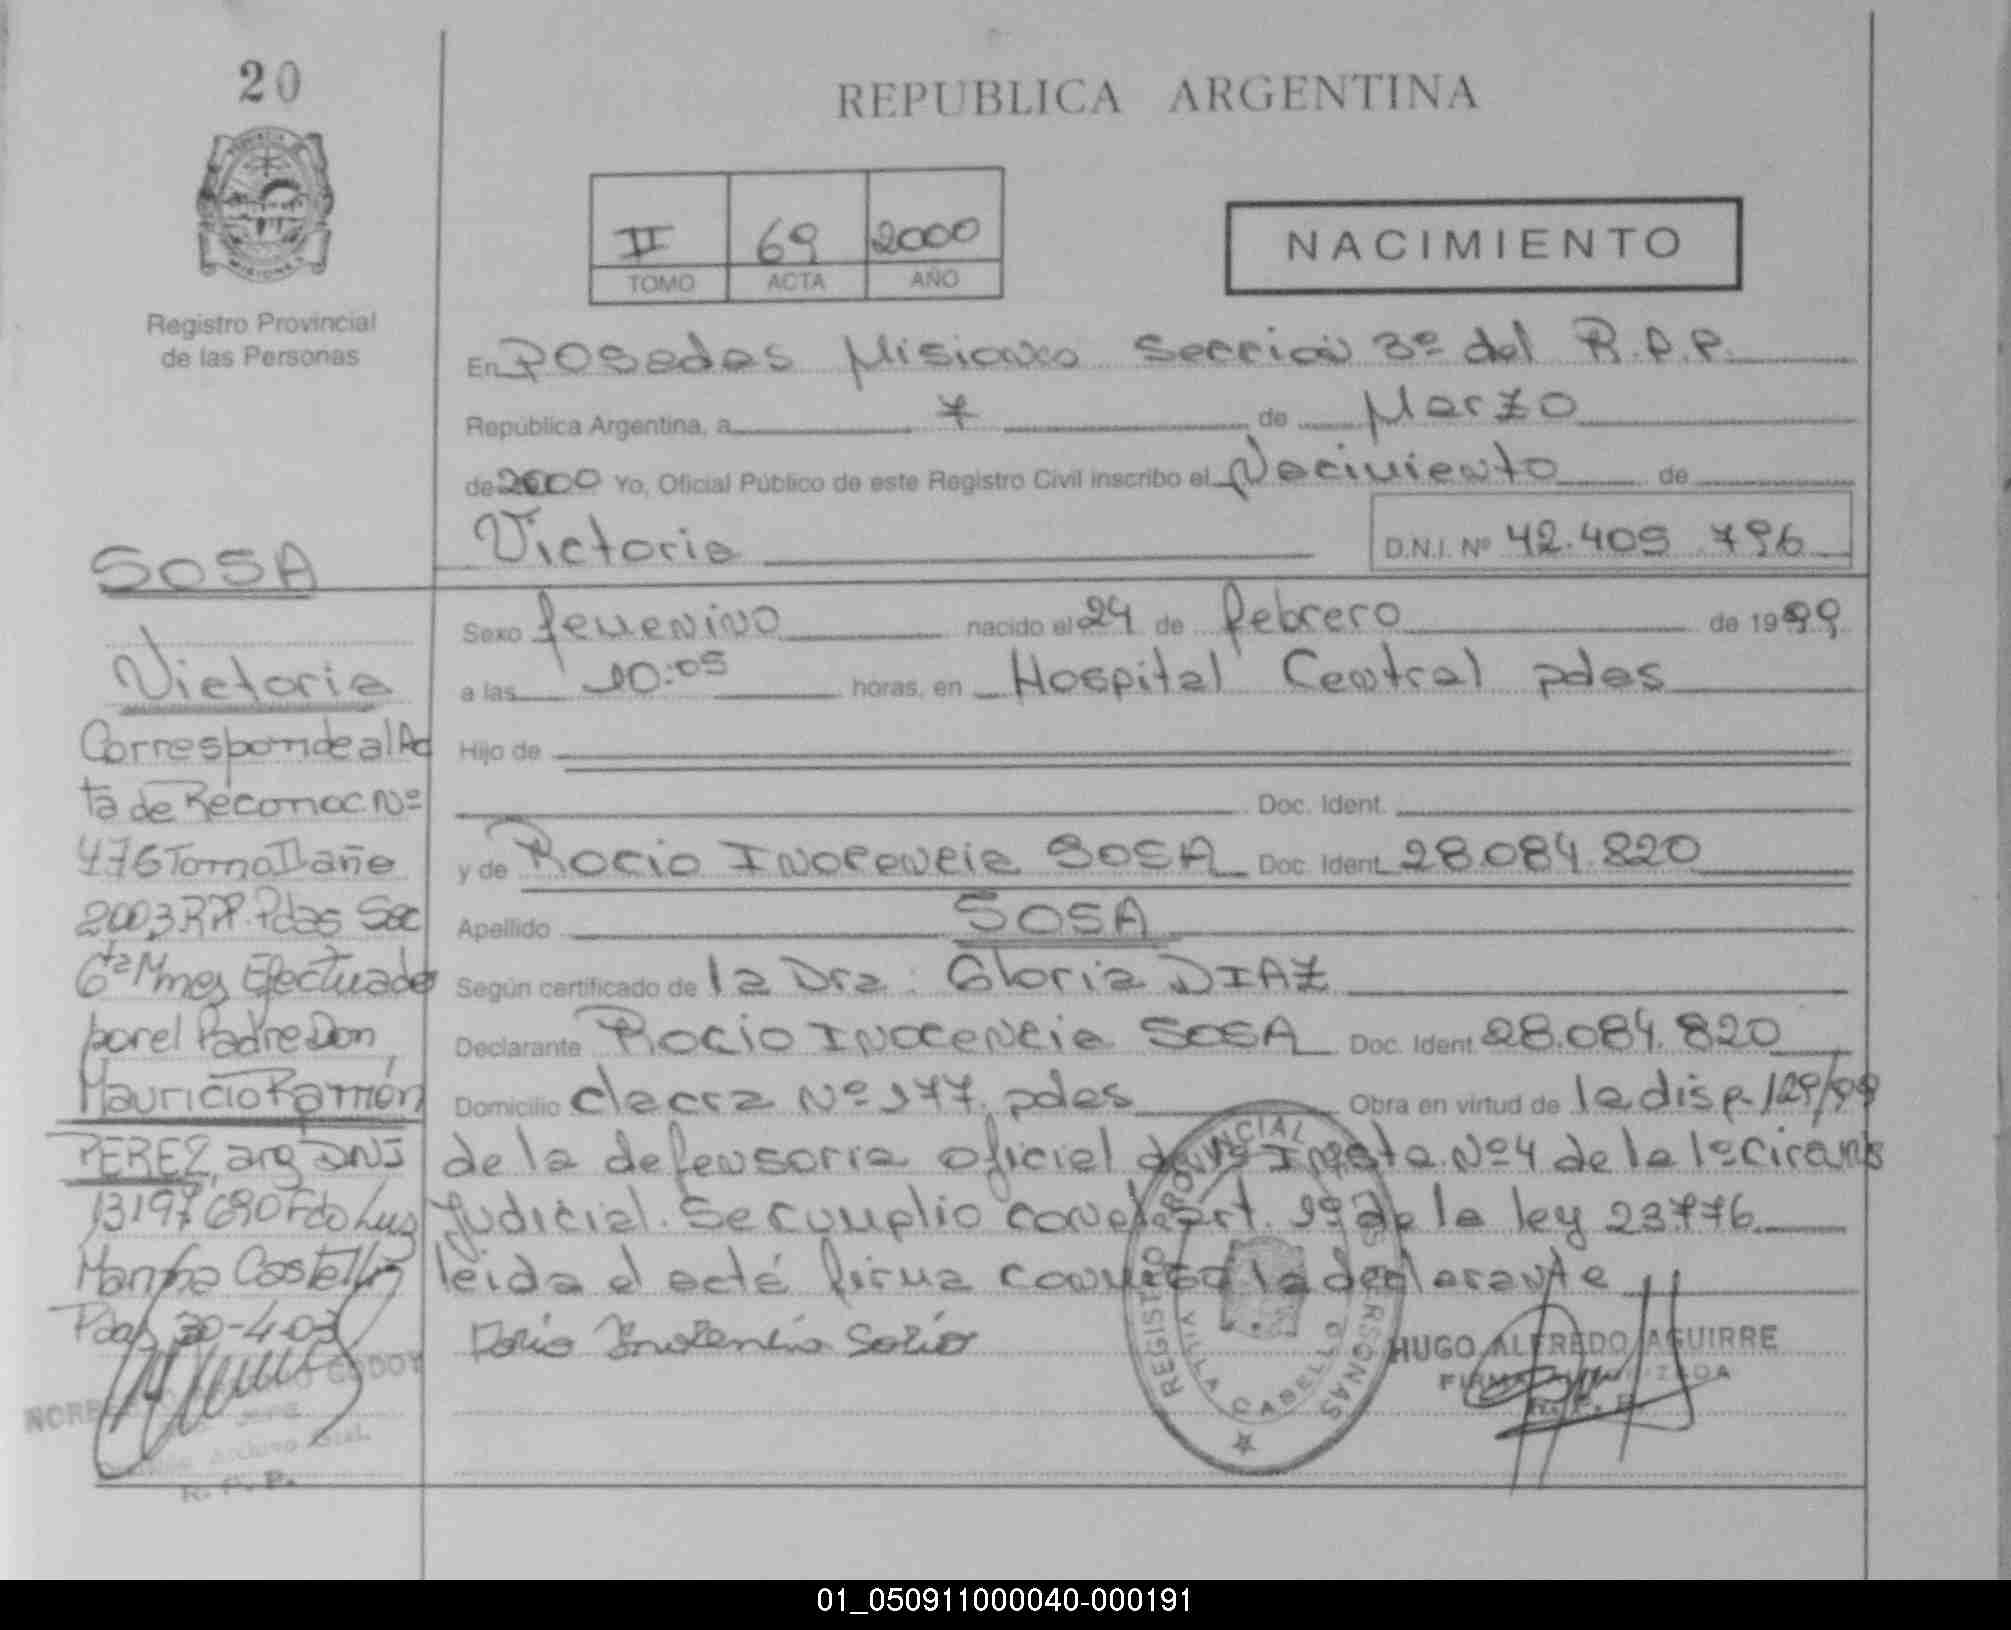 20
REPUBLICA ARGENTINA
II 69 2000
TOMO ACTA AÑO
NACIMIENTO
Registro Provincial
de las Personas
En Posadas Misiones Sección 3º del R.P.P.
República Argentina, a 7 de Marzo
de 2000 Yo, Oficial Público de este Registro Civil inscribo el Nacimiento de
Victoria D.N.I. Nº 42.409 796
Sexo femenino nacido el 24 de febrero de 1999
a las 10:05 horas, en Hospital Central pdas
Hijo de
Doc. Ident.
y de Rocio Inocencia SOSA Doc. Ident. 28.084.820
Apellido SOSA
Según certificado de la Dra. Gloria DIAZ
Declarante Rocio Inocencia SOSA Doc. Ident. 28.084.820
Domicilio chacra Nº 177 pdas Obra en virtud de la disp. 129/99
de la defensoria oficial de Insta. Nº4 de la 1º Circuns
Judicial. Se cumplio con el art. 1º de la ley 23776
leida el acta firma conmigo la declarante
SOSA
Victoria
Corresponde al Ac
ta de Reconoc Nº
476 Tomo II año
2003 RPP. Pdas Sec
6ta Mnes Efectuado
por el Padre Don
Mauricio Ramón
PEREZ, arg DNI
13197690 Fdo Luz
Marina Castello
Pdas 30-4-03
REGISTRO PROVINCIAL PERSONAS
VILLA CABELLO
HUGO ALFREDO AGUIRRE
FIRMA AUTORIZADA
R. P. P.
GODOY
R. P. P.
01_050911000040-000191